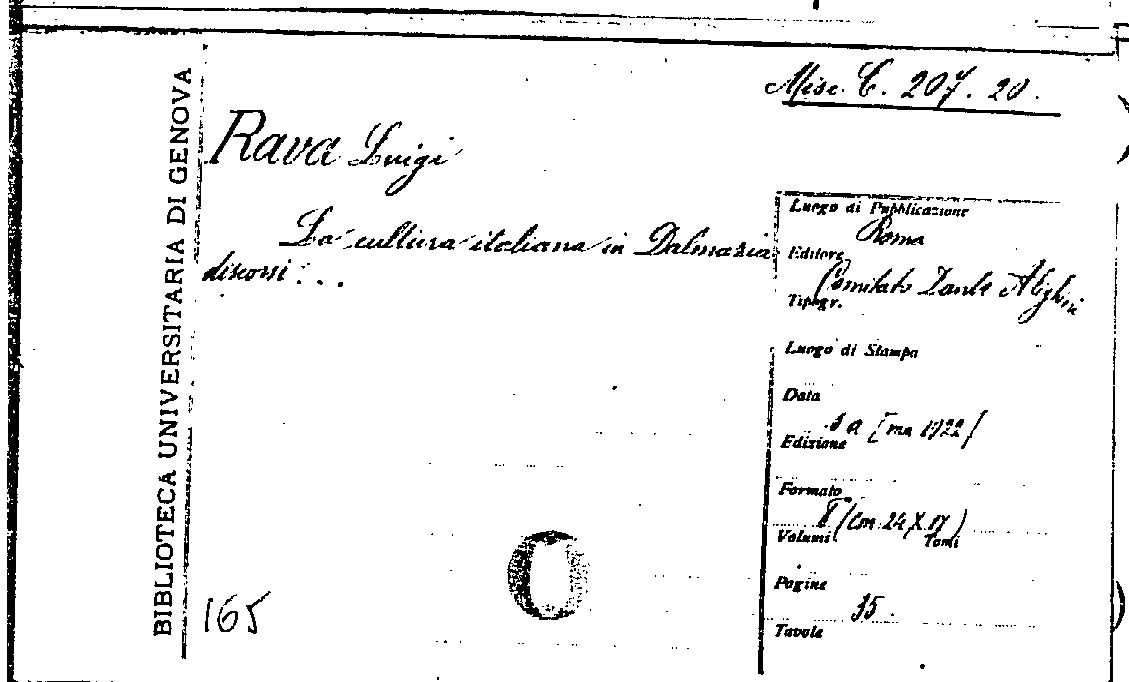 BIBLIOTECA UNIVERSITARIA DI GENOVA
Misc. C. 207. 20.
Rava Luigi
La cultura italiana in Dalmazia:
discorsi...
Luogo di Pubblicazione
Roma
Editore
Comitato Dante Alighieri
Tipogr.
Luogo di Stampa
Data
s a [ma 1922]
Edizione
Formato
8° (cm 24 X 17)
Volumi Tomi
Pagine
35.
Tavole
165
O